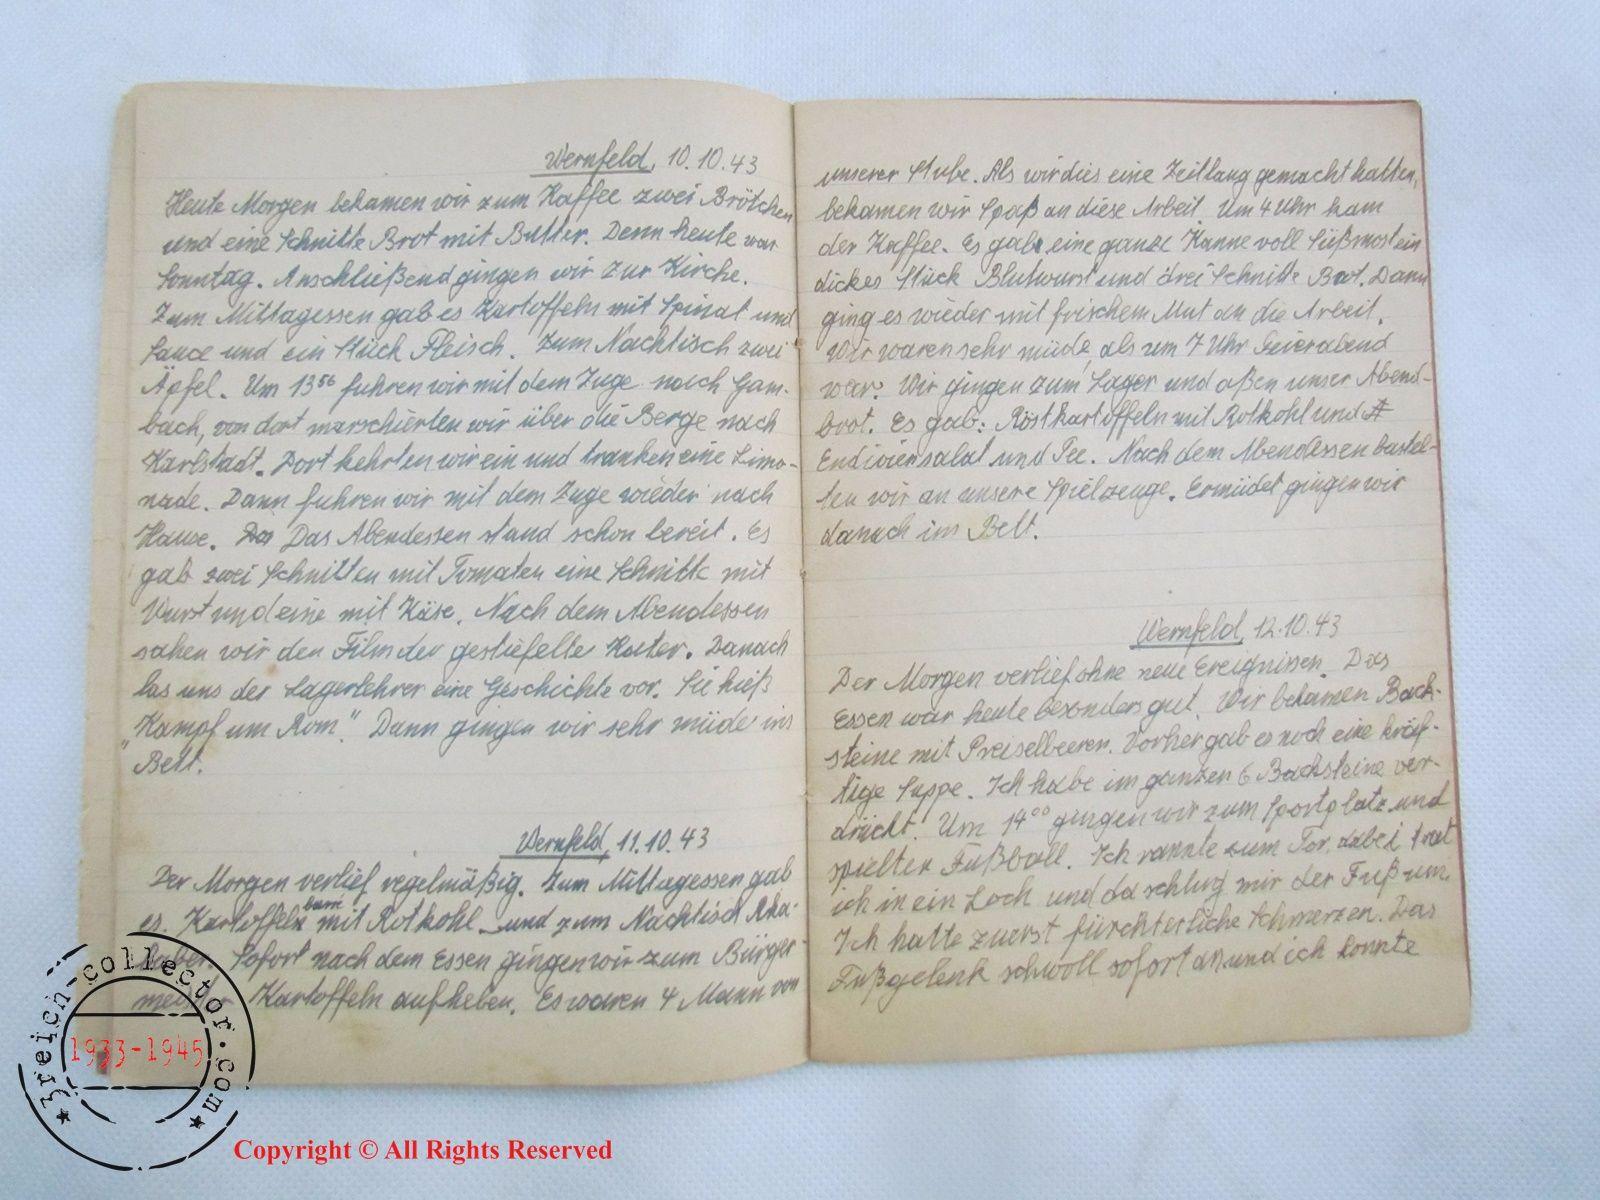 Wernfeld, 10.10.43
Heute Morgen bekamen wir zum Kaffee zwei Brötchen
und eine Schnitte Brot mit Butter. Denn heute war
Sonntag. Anschließend gingen wir zur Kirche.
Zum Mittagessen gab es Kartoffeln mit Spinat und
Sauce und ein Stück Fleisch. Zum Nachtisch zwei
Äpfel. Um 13⁵⁶ fuhren wir mit dem Zuge nach Gam-
bach, von dort marschierten wir über die Berge nach
Karlstadt. Dort kehrten wir ein und tranken eine Limo-
nade. Dann fuhren wir mit dem Zuge wieder nach
Hause. Das Abendessen stand schon bereit. Es
gab zwei Schnitten mit Tomaten eine Schnitte mit
Wurst und eine mit Käse. Nach dem Abendessen
sahen wir den Film der gestiefelte Kater. Danach
las uns der Lagerlehrer eine Geschichte vor. Sie hieß
"Kampf um Rom". Dann gingen wir sehr müde ins
Bett.
Wernfeld, 11.10.43
Der Morgen verlief regelmäßig. Zum Mittagessen gab
es. Kartoffeln mit Rotkohl und zum Nachtisch Rha-
baber. Sofort nach dem Essen gingen wir zum Bürger-
meister Kartoffeln aufheben. Es waren 4 Mann von
unserer Stube. Als wir dies eine Zeitlang gemacht hatten,
bekamen wir Spaß an diese Arbeit. Um 4 Uhr kam
der Kaffee. Es gab eine ganze Kanne voll Süßmost ein
dickes Stück Blutwurst und drei Schnitte Brot. Dann
ging es wieder mit frischem Mut an die Arbeit.
Wir waren sehr müde, als um 7 Uhr Feierabend
war. Wir gingen zum Lager und aßen unser Abend-
brot. Es gab: Röstkartoffeln mit Rotkohl und
Endiviensalat und Tee. Nach dem Abendessen bastel-
ten wir an unsere Spielzeuge. Ermüdet gingen wir
danach ins Bett.
Wernfeld, 12.10.43
Der Morgen verlief ohne neue Ereignissen. Das
Essen war heute besonders gut. Wir bekamen Back-
steine mit Preiselbeeren. Vorher gab es noch eine kräf-
tige Suppe. Ich habe im ganzen 6 Backsteine ver-
drückt. Um 14⁰⁰ gingen wir zum Sportplatz und
spielten Fußball. Ich rannte zum Tor, dabei trat
ich in ein Loch und da schlug mir der Fuß um.
Ich hatte zuerst fürchterliche Schmerzen. Das
Fußgelenk schwoll sofort an und ich konnte
3reich-collector.com
1933-1945
Copyright © All Rights Reserved